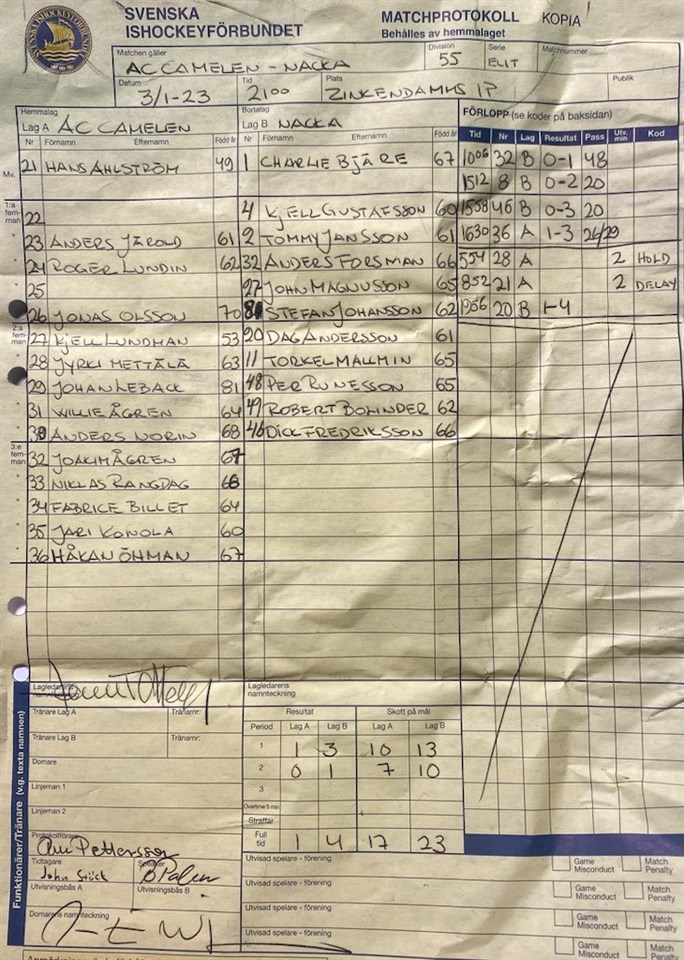 SVENSKA
ISHOCKEYFÖRBUNDET
MATCHPROTOKOLL KOPIA
Behålles av hemmalaget
SVENSKA ISHOCKEYFÖRBUNDET
Matchen gäller Division Serie Matchnummer
AC CAMELEN - NACKA 55 ELIT
Datum Tid Plats Publik
3/1-23 2100 ZINKENDAMMS IP
Hemmalag Bortalag FÖRLOPP (se koder på baksidan)
Lag A AC CAMELEN Lag B NACKA
Nr Förnamn Efternamn Född år Nr Förnamn Efternamn Född år Tid Nr Lag Resultat Pass Utv. min Kod
Mv. 21 HANS AHLSTRÖM 49 1 CHARLIE BJÄRE 67 1006 32 B 0-1 48
1512 8 B 0-2 20
1:a fem- man 22 4 KJELL GUSTAFSSON 60 1558 46 B 0-3 20
23 ANDERS JÄROLD 61 2 TOMMY JANSSON 61 1630 36 A 1-3 26/29
24 ROGER LUNDIN 62 32 ANDERS FORSMAN 66 554 28 A 2 HOLD
25 27 JOHN MAGNUSSON 65 852 21 A 2 DELAY
26 JONAS OLSSON 70 STEFAN JOHANSSON 62 1956 20 B 1-4
2:a fem- man 27 KJELL LUNDMAN 53 20 DAG ANDERSSON 61
28 JYRKI METTÄLÄ 63 11 TORKEL MALLMIN 65
29 JOHAN LEBACK 81 48 PER RUNESSON 65
31 WILLIE ÅGREN 64 49 ROBERT BOLINDER 62
ANDERS NORIN 68 46 DICK FREDRIKSSON 66
3:e fem- man 32 JOAKIM ÅGREN 67
33 NIKLAS RANGDAG 68
34 FABRICE BILLET 64
35 JARI KONOLA 60
36 HÅKAN ÖHMAN 67
Lagledarens namnteckning Lagledarens namnteckning
Funktionärer/Tränare (v.g. texta namnen)
Tränare Lag A Tränarnr:
Tränare Lag B Tränarnr:
Domare
Linjeman 1
Linjeman 2
Protokollförare
Pettersson
Tidtagare Speaker
John Stück
Utvisningsbås A Utvisningsbås B
Domarens namnteckning
Resultat Skott på mål
Period Lag A Lag B Lag A Lag B
1 1 3 10 13
2 0 1 7 10
3
Overtime 5 min
Straffar
Full tid 1 4 17 23
Utvisad spelare - förening Game Misconduct Match Penalty
Utvisad spelare - förening Game Misconduct Match Penalty
Utvisad spelare - förening Game Misconduct Match Penalty
Utvisad spelare - förening Game Misconduct Match Penalty